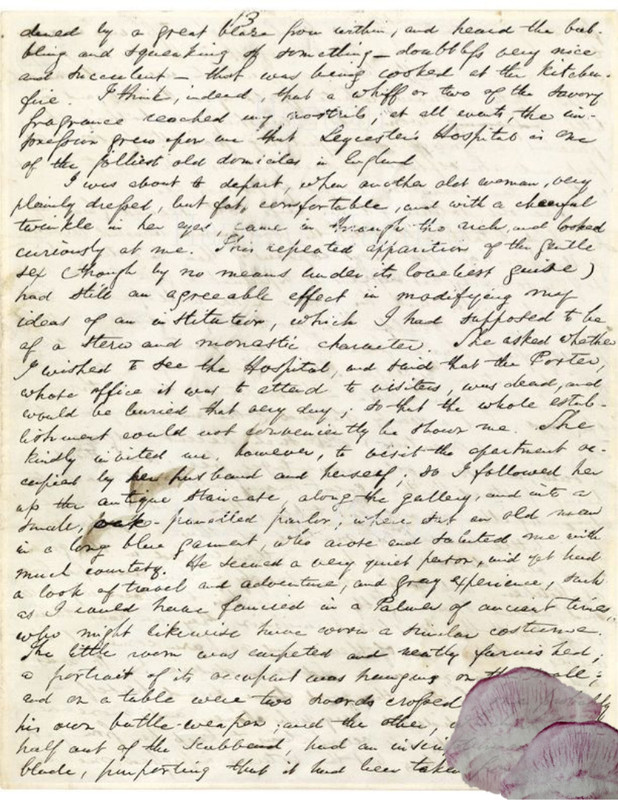 13
dened by a great blaze from within, and heard the bub-
bling and squeaking of something—doubtless very nice
and succulent—that was being cooked at the kitchen-
fire. I think, indeed, that a whiff or two of the savory
fragrance reached my nostrils; at all events, the im-
pression grew upon me that Leycester's Hospital is one
of the jolliest old domiciles in England
I was about to depart, when another old woman, very
plainly dressed, but fat, comfortable, and with a cheerful
twinkle in her eyes, came in through the arch, and looked
curiously at me. This repeated apparition of the gentle
sex (though by no means under its loveliest guise)
had still an agreeable effect in modifying my
ideas of an institution, which I had supposed to be
of a stern and monastic character. She asked whether
I wished to see the Hospital, and said that the Porter,
whose office it was to attend to visitors, was dead, and
would be buried that very day; so that the whole estab-
lishment could not conveniently be shown me. She
kindly invited me, however, to visit the apartment oc-
cupied by her husband and herself; so I followed her
up the antique staircase, along the gallery, and into a
small, oak-panelled parlor, where sat an old man
in a long blue garment, who arose and saluted me with
much courtesy. He seemed a very quiet person, and yet had
a look of travel and adventure, and gray experience, such
as I could have fancied in a Palmer of ancient times,
who might likewise have worn a similar costume.
The little room was carpeted and neatly furnished;
a portrait of its occupant was hanging on the wall;
and on a table were two swords crossed
his own battle-weapon, and the other,
half out of the scabbard, had an inscri
blade, purporting that it had been taken